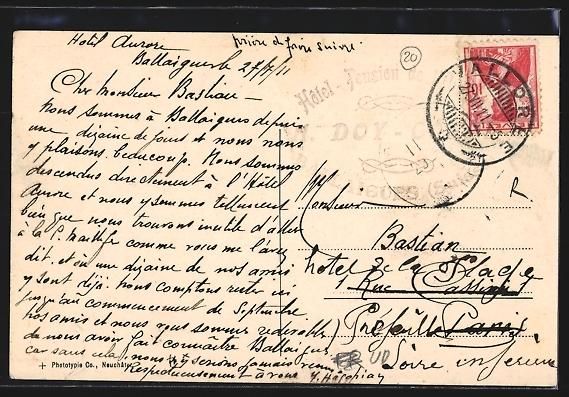 Hôtel Aurore
Ballaigues le 27/7/11
prière de faire suivre.
20
Cher Monsieur Bastian
Nous sommes à Ballaigues depuis
une dizaine de jours et nous nous
y plaisons beaucoup. Nous sommes
descendus directement à l'Hôtel
Aurore et nous y sommes tellement
bien que nous trouvons inutile d'aller
à la comme vous me l'avez
dit, et où une dizaine de nos amis
y sont déjà. Nous comptons rester ici
jusqu'au commencement de Septembre
nos amis et nous vous sommes redevables
de nous avoir fait connaître Ballaigues
car sans cela, nous n'y serions jamais venus
Respectueusement à vous
Hôtel-Pension de
DOY-
VALLORBE
R
Monsieur
Bastian
hôtel de la Plage
Rue
Préfailles Paris
Loire inférieure
+ Phototypie Co., Neuchâtel